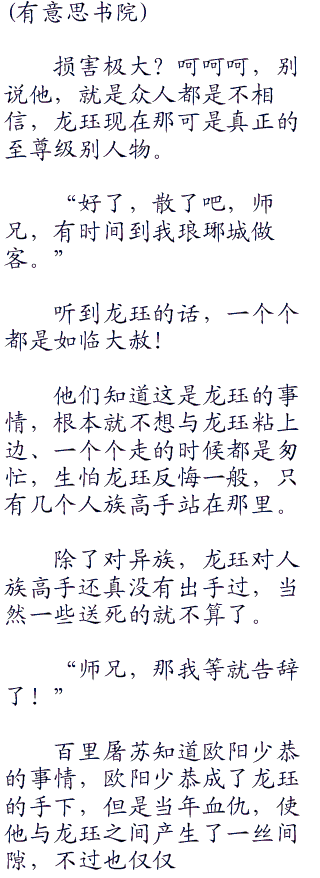 (有意思书院)
损害极大？呵呵呵，别
说他，就是众人都是不相
信，龙珏现在那可是真正的
至尊级别人物。
“好了，散了吧，师
兄，有时间到我琅琊城做
客。”
听到龙珏的话，一个个
都是如临大赦！
他们知道这是龙珏的事
情，根本就不想与龙珏粘上
边、一个个走的时候都是匆
忙，生怕龙珏反悔一般，只
有几个人族高手站在那里。
除了对异族，龙珏对人
族高手还真没有出手过，当
然一些送死的就不算了。
“师兄，那我等就告辞
了！”
百里屠苏知道欧阳少恭
的事情，欧阳少恭成了龙珏
的手下，但是当年血仇，使
他与龙珏之间产生了一丝间
隙，不过也仅仅